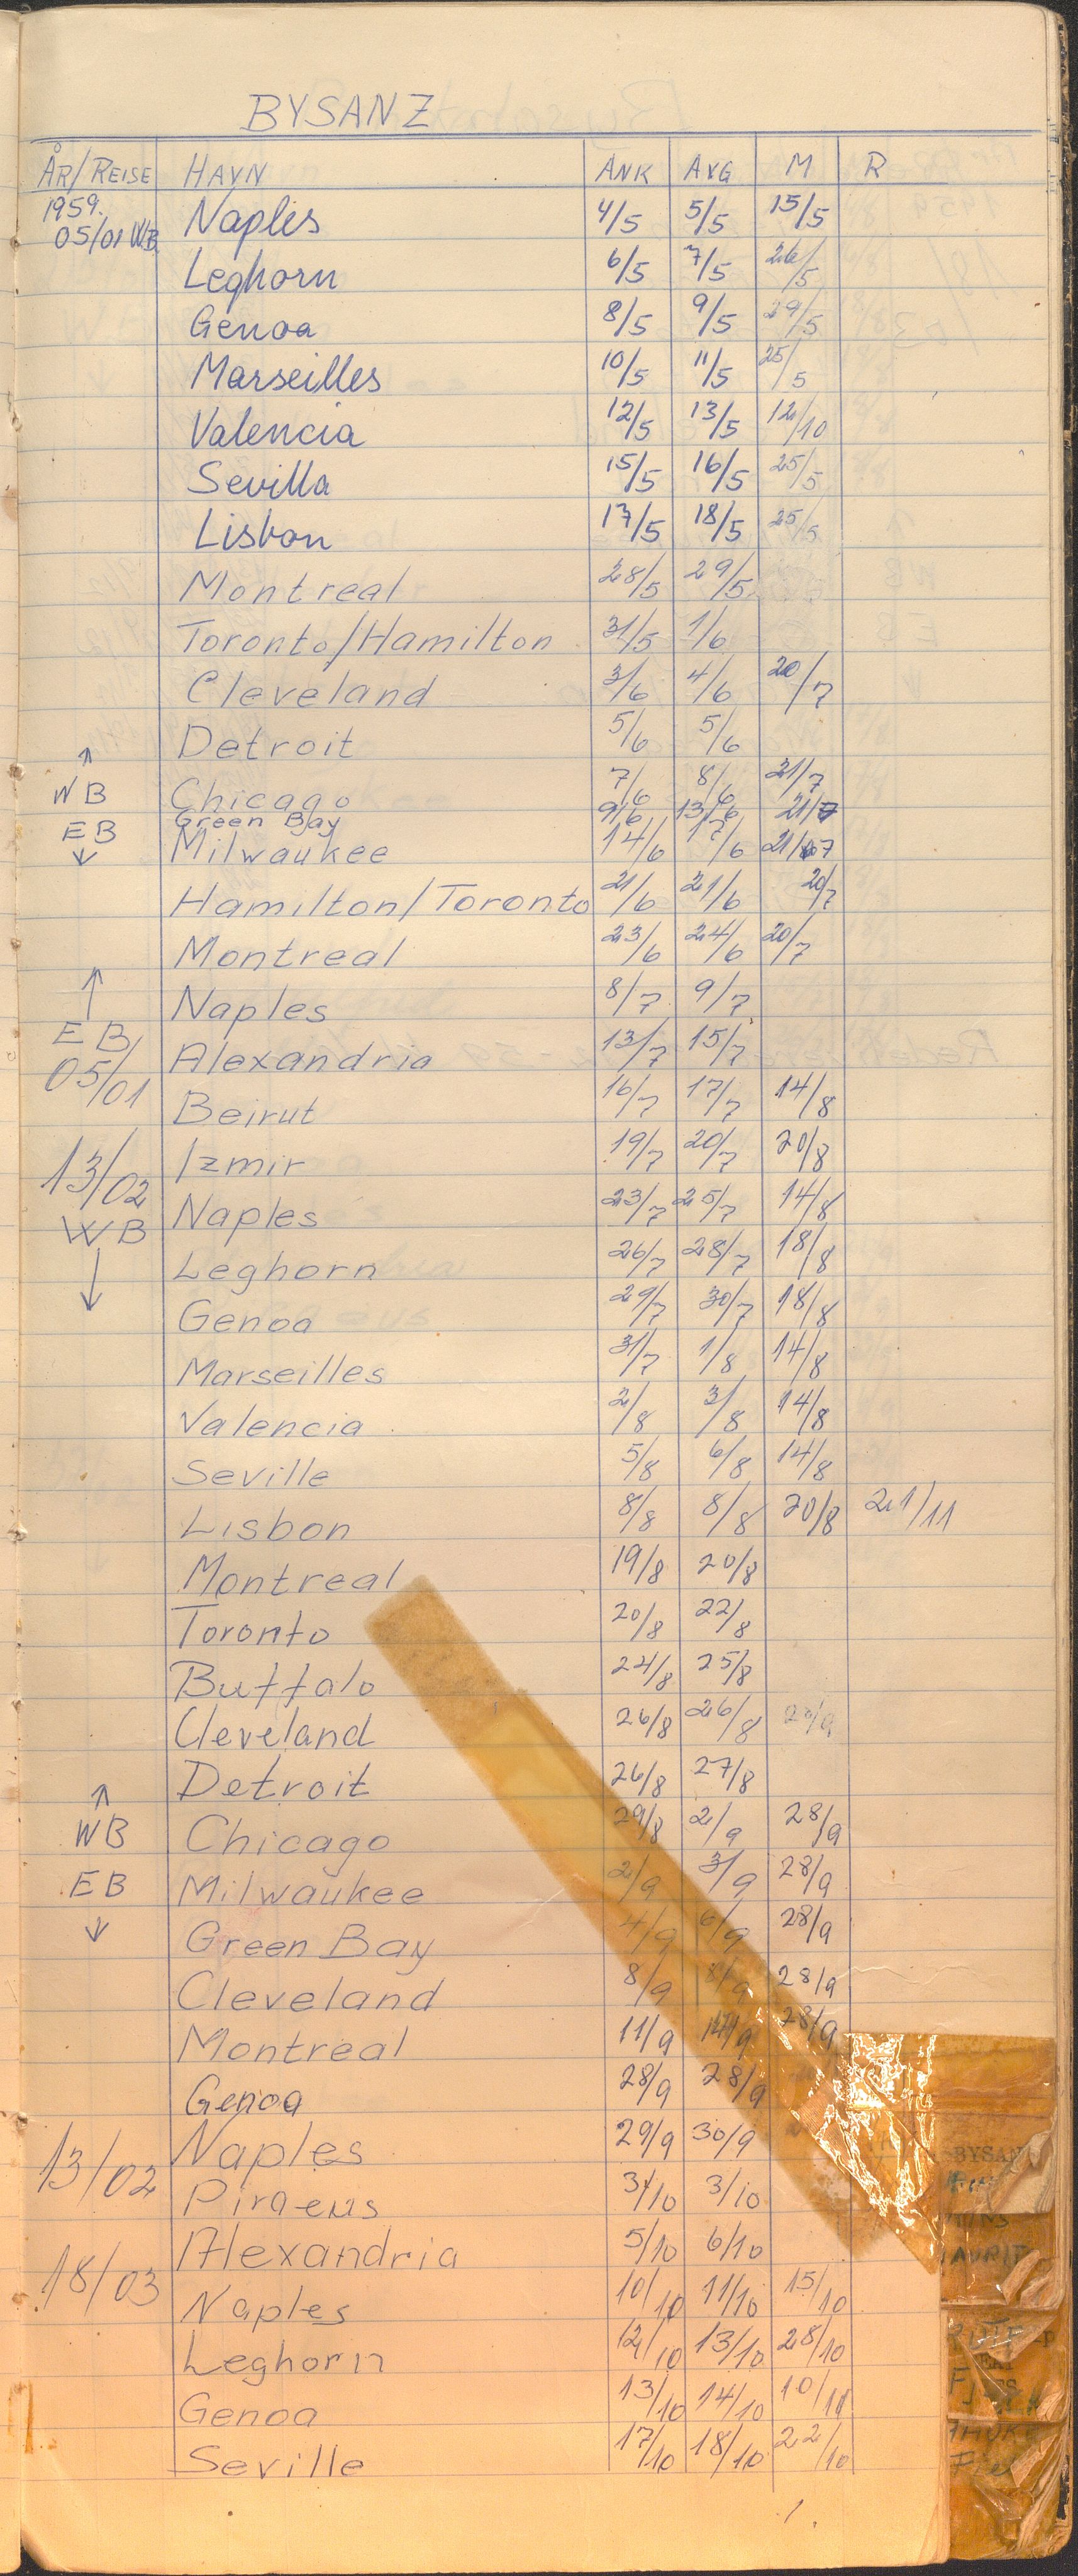 BYSANZ
ÅR/REISE HAVN ANK AVG M R
1959.
05/01 WB Naples 4/5 5/5 15/5
Leghorn 6/5 7/5 26/5
Genoa 8/5 9/5 29/5
Marseilles 10/5 11/5 25/5
Valencia 12/5 13/5 12/10
Sevilla 15/5 16/5 25/5
Lisbon 17/5 18/5 25/5
Montreal 28/5 29/5
Toronto/Hamilton 31/5 1/6
Cleveland 3/6 4/6 20/7
Detroit 5/6 5/6
↑
WB Chicago 7/6 8/6 21/7
Green Bay 9/6 13/6 21/7
EB Milwaukee 14/6 17/6 21/7
↓
Hamilton/Toronto 21/6 21/6 20/7
Montreal 23/6 24/6 20/7
↑ Naples 8/7 9/7
EB Alexandria 13/7 15/7
05/01 Beirut 16/7 17/7 14/8
13/02 Izmir 19/7 20/7 20/8
WB Naples 23/7 25/7 14/8
↓ Leghorn 26/7 28/7 18/8
Genoa 29/7 30/7 18/8
Marseilles 31/7 1/8 14/8
Valencia 2/8 3/8 14/8
Seville 5/8 6/8 14/8
Lisbon 8/8 8/8 20/8 21/11
Montreal 19/8 20/8
Toronto 20/8 22/8
Buffalo 24/8 25/8
Cleveland 26/8 26/8
Detroit 26/8 27/8
↑
WB Chicago 29/8 2/9 28/9
EB Milwaukee 2/9 3/9 28/9
↓ Green Bay 4/9 6/9 28/9
Cleveland 8/9 8/9 28/9
Montreal 11/9 28/9
Genoa 28/9 28/9
Naples 29/9 30/9
13/02 Piraeus 3/10
Alexandria 5/10 6/10
18/03 Naples 10/10 11/10 15/10
Leghorn 12/10 13/10 28/10
Genoa 13/10 14/10 10/11
Seville 17/10 18/10 22/10
BYSAN